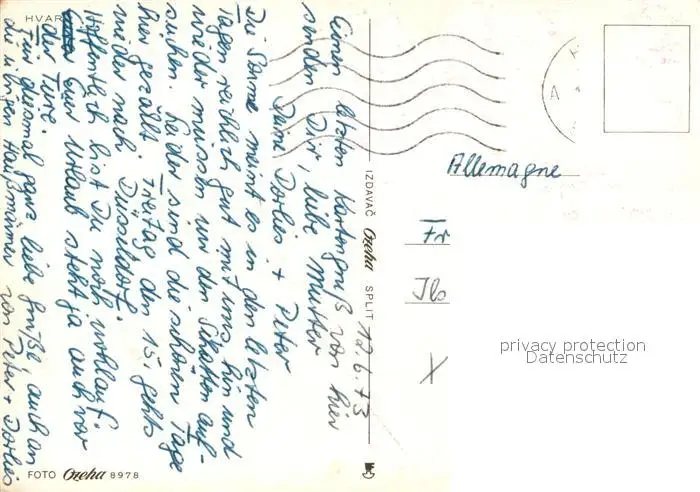 HVAR
12.6.73
Einen letzten Kartengruß von hier
senden Dir, liebe Mutter
Deine Dorlies + Peter
Die Sonne meint es in den letzten
Tagen reichlich gut mit uns, hin und
wieder müssen wir den Schatten auf-
suchen. Leider sind die schönen Tage
hier gezählt. Freitag den 15. gehts
wieder nach Düsseldorf.
Hoffentlich bist Du noch wohlauf.
Euer Urlaub steht ja auch vor
der Türe.
Für diesmal ganz liebe Grüße auch an
die übrigen Haußmänner von Peter + Dorlies
FOTO Ozeha 8978
IZDAVAČ Ozeha SPLIT
A
Allemagne
Fr
Ils
privacy protection
Datenschutz